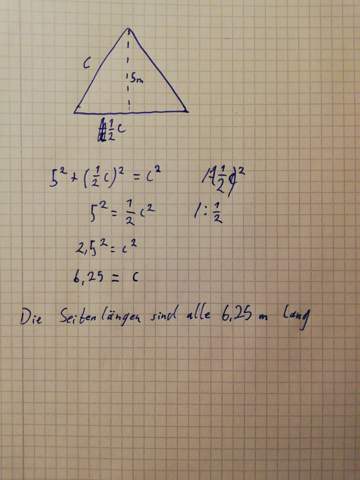 C
5m
1/2 C
5² + (1/2 c)² = c² /-(1/2 c)²
5² = 1/2 c² /: 1/2
2,5² = c²
6,25 = c
Die Seitenlängen sind alle 6,25 m lang